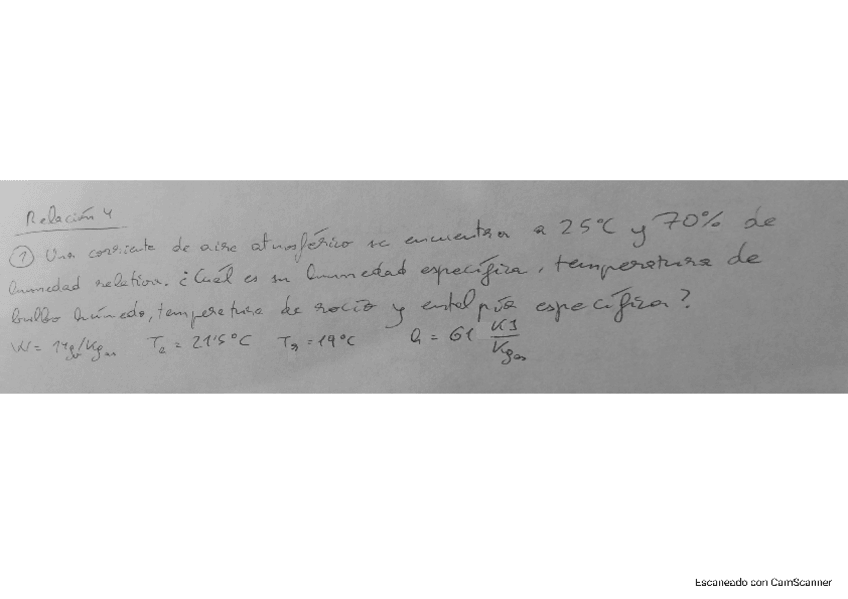 Relación 4
① Una corriente de aire atmosférico se encuentra a 25°C y 70% de
humedad relativa. ¿Cuál es su humedad específica, temperatura de
bulbo húmedo, temperatura de rocío y entalpía específica?
W = 14 g/Kg as   Te = 21'5°C   TR = 19°C   h = 61 KJ/Kg as
Escaneado con CamScanner